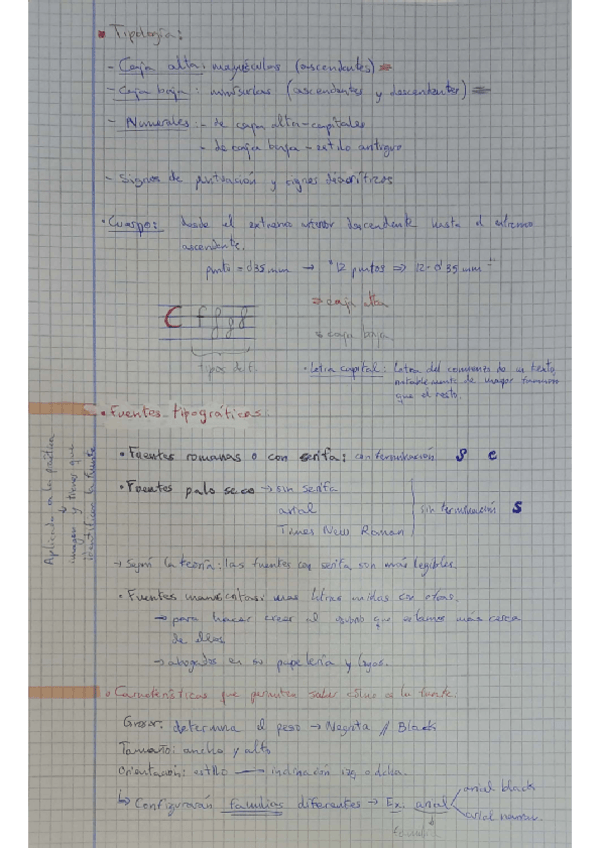 • Tipología:
- Caja alta: mayúsculas (ascendentes)
- Caja baja: minúsculas (ascendentes y descendentes)
- Numerales: - de caja alta - capitales
- de caja baja - estilo antiguo
- Signos de puntuación y signos diacríticos
• Cuerpo: desde el extremo inferior descendente hasta el extremo
ascendente.
punto = 0'35 mm → "12 puntos ⇒ 12 · 0'35 mm"
⇒ caja alta
C f g g f
caja baja
tipos de f.
• Letra capital: letra del comienzo de un texto
notablemente de mayor tamaño
que el resto.
• Fuentes tipográficas:
Aplicado a la práctica
↓
imagen y tienes que
identificar la fuente
• Fuentes romanas o con serifa: con terminación S e
• Fuentes palo seco → sin serifa
arial
Times New Roman
sin terminación S
→ Según la teoría: las fuentes con serifa son más legibles.
• Fuentes manuscritas: mas letras unidas con otras.
→ para hacer creer al usuario que estamos más cerca
de ellos
→ abogados en su papelería y logos.
• Características que permiten saber cómo es la fuente.
Grosor: determina el peso → Negrita // Black
Tamaño: ancho y alto
Orientación: estilo → inclinación izq o dcha.
↳ Configurarán familias diferentes → Ex. arial
arial black
arial narrow.
familia